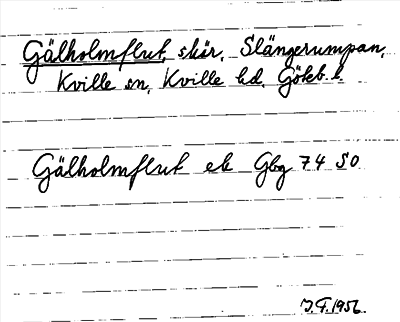 Gälholmflut, skär, Slängerumpan,
Kville sn, Kville hd, Göteb. l.
Gälholmflut ek Gbg 74 SO
J.F. 1956.